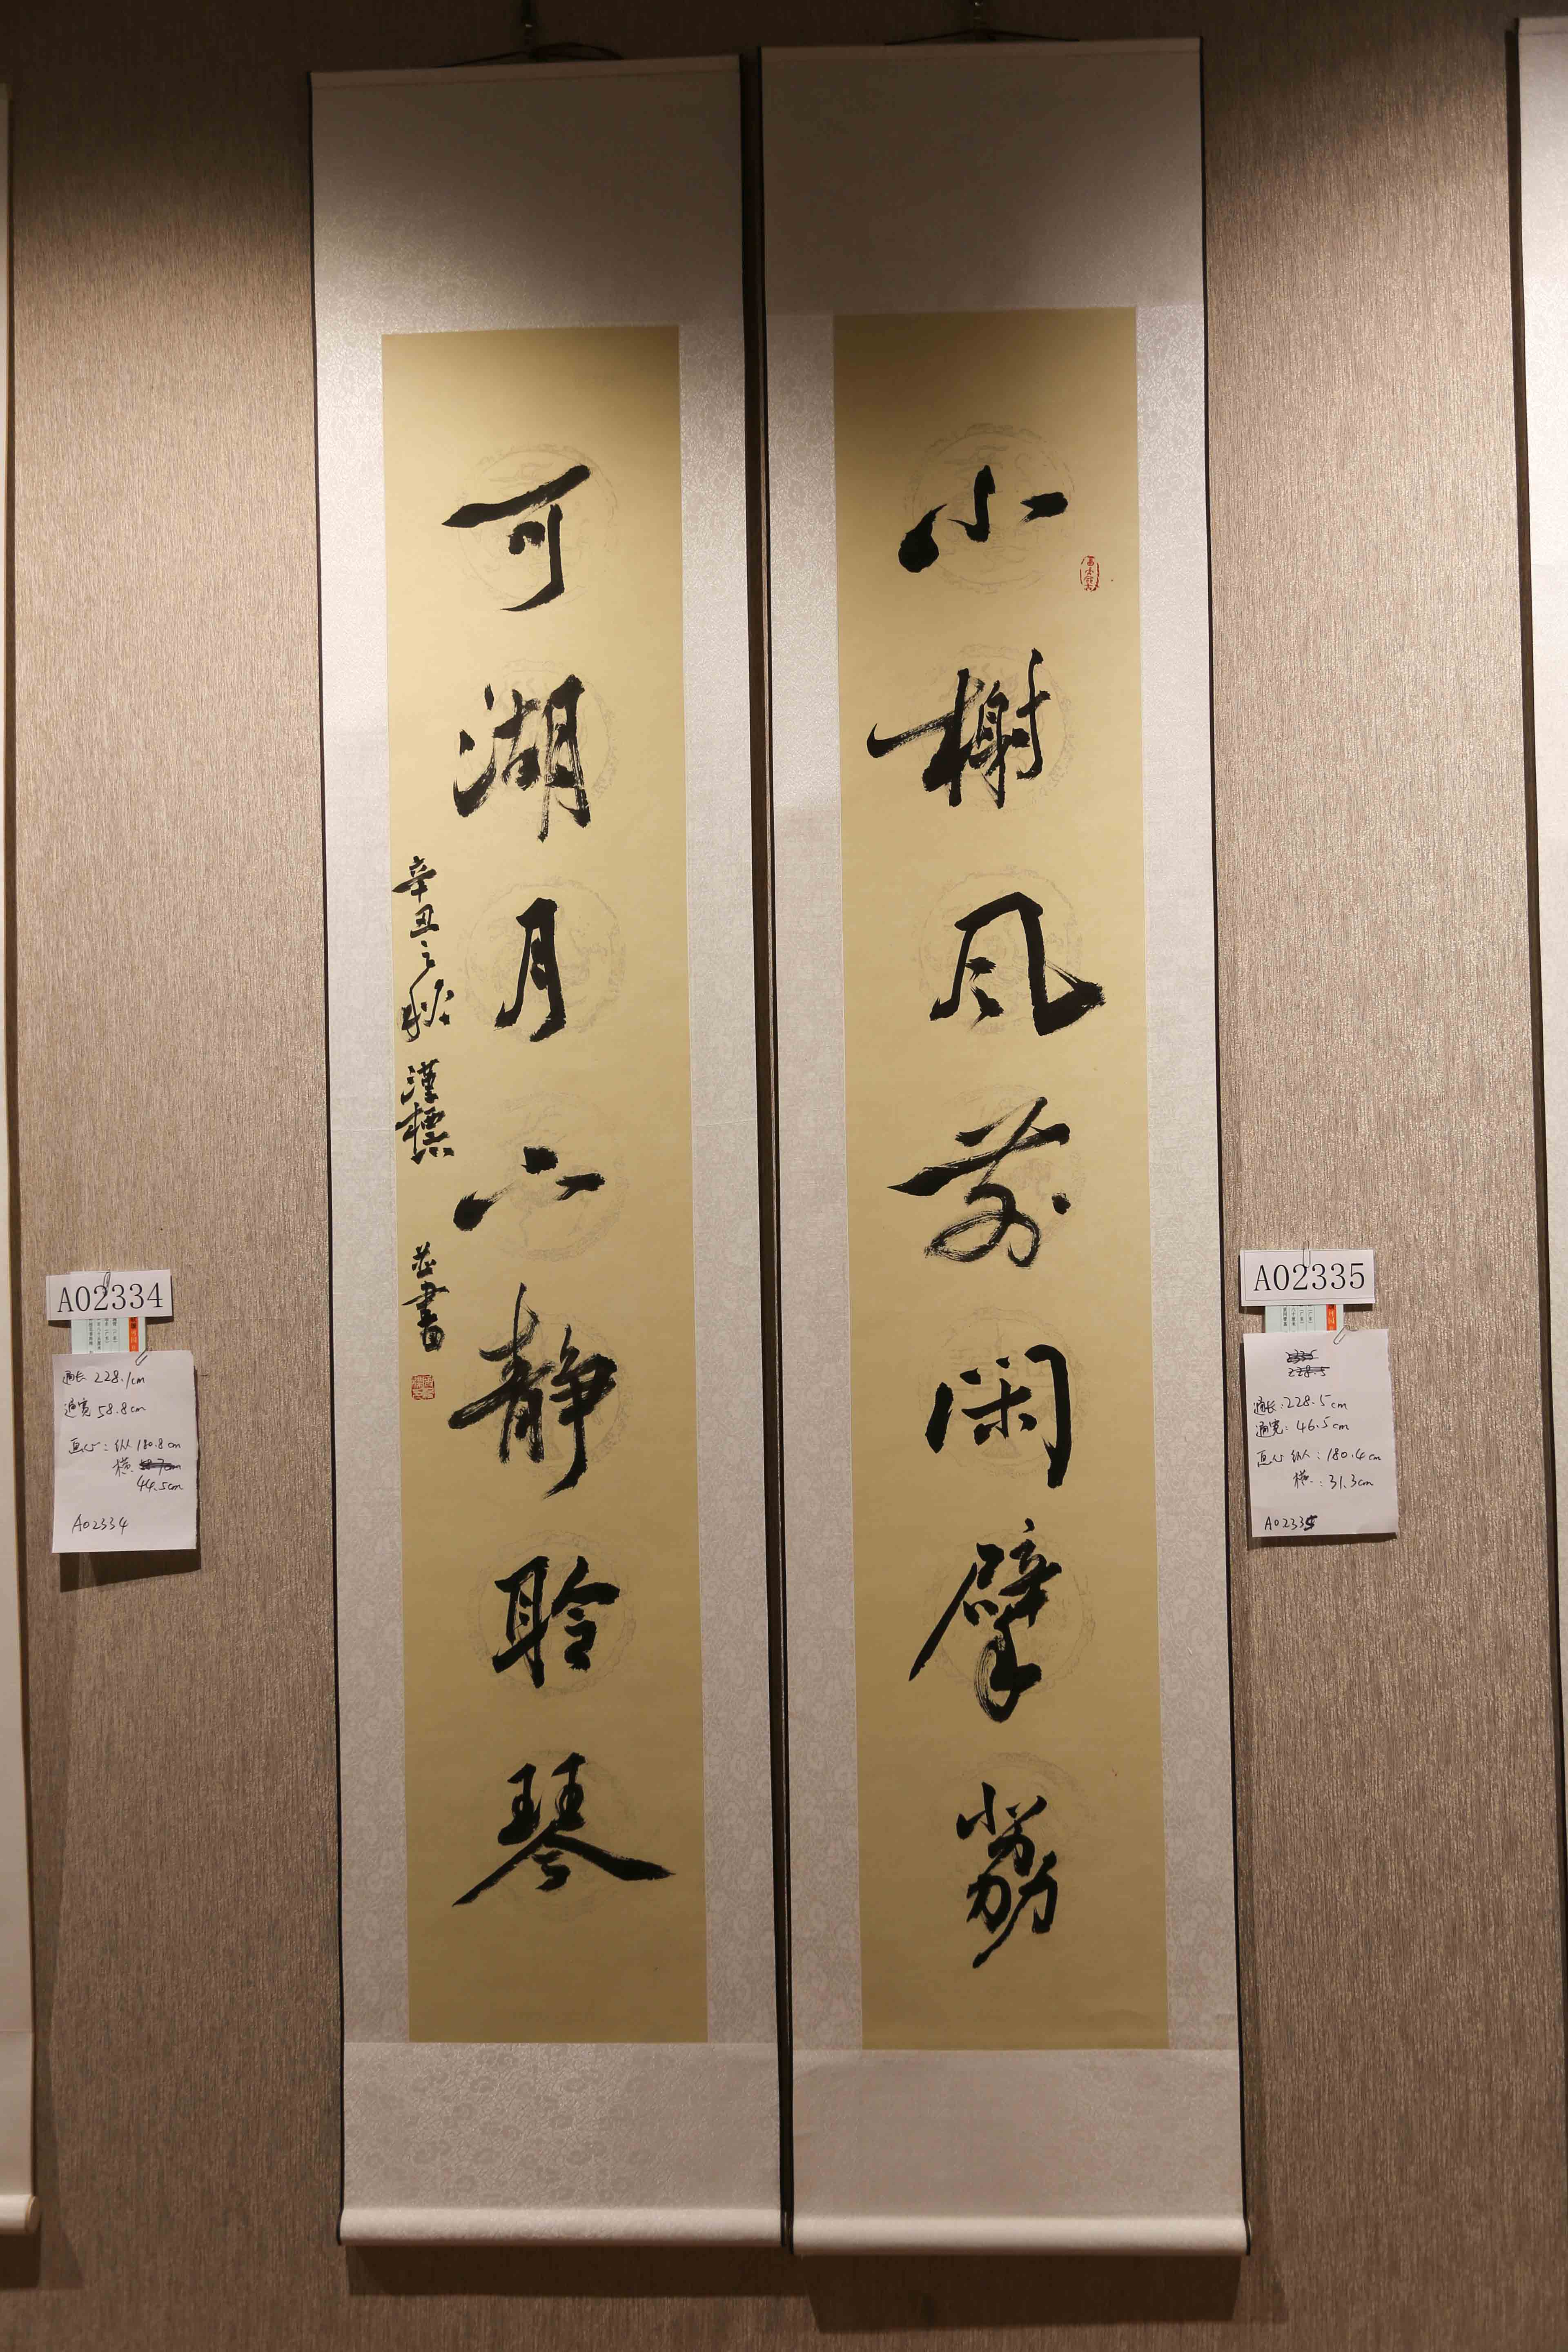 小榭风前闲擘荔
可湖月下静聆琴
辛丑之秋 漢標 並書
A02334
通长 228.1cm
通宽 58.8cm
画心：纵 180.8cm
横
44.5cm
A02334
A02335
228.5
通长：228.5cm
通宽：46.5cm
画心 纵：180.4cm
横：31.3cm
A02335